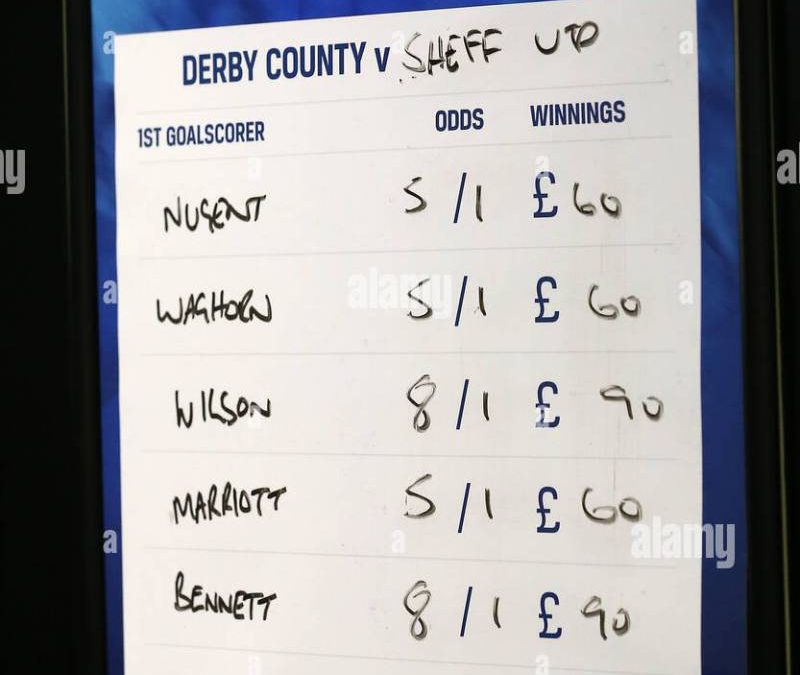 DERBY COUNTY v SHEFF UTD
1ST GOALSCORER ODDS WINNINGS
NUGENT 5/1 £60
WAGHORN 5/1 £60
WILSON 8/1 £90
MARRIOTT 5/1 £60
BENNETT 8/1 £90
alamy
alamy